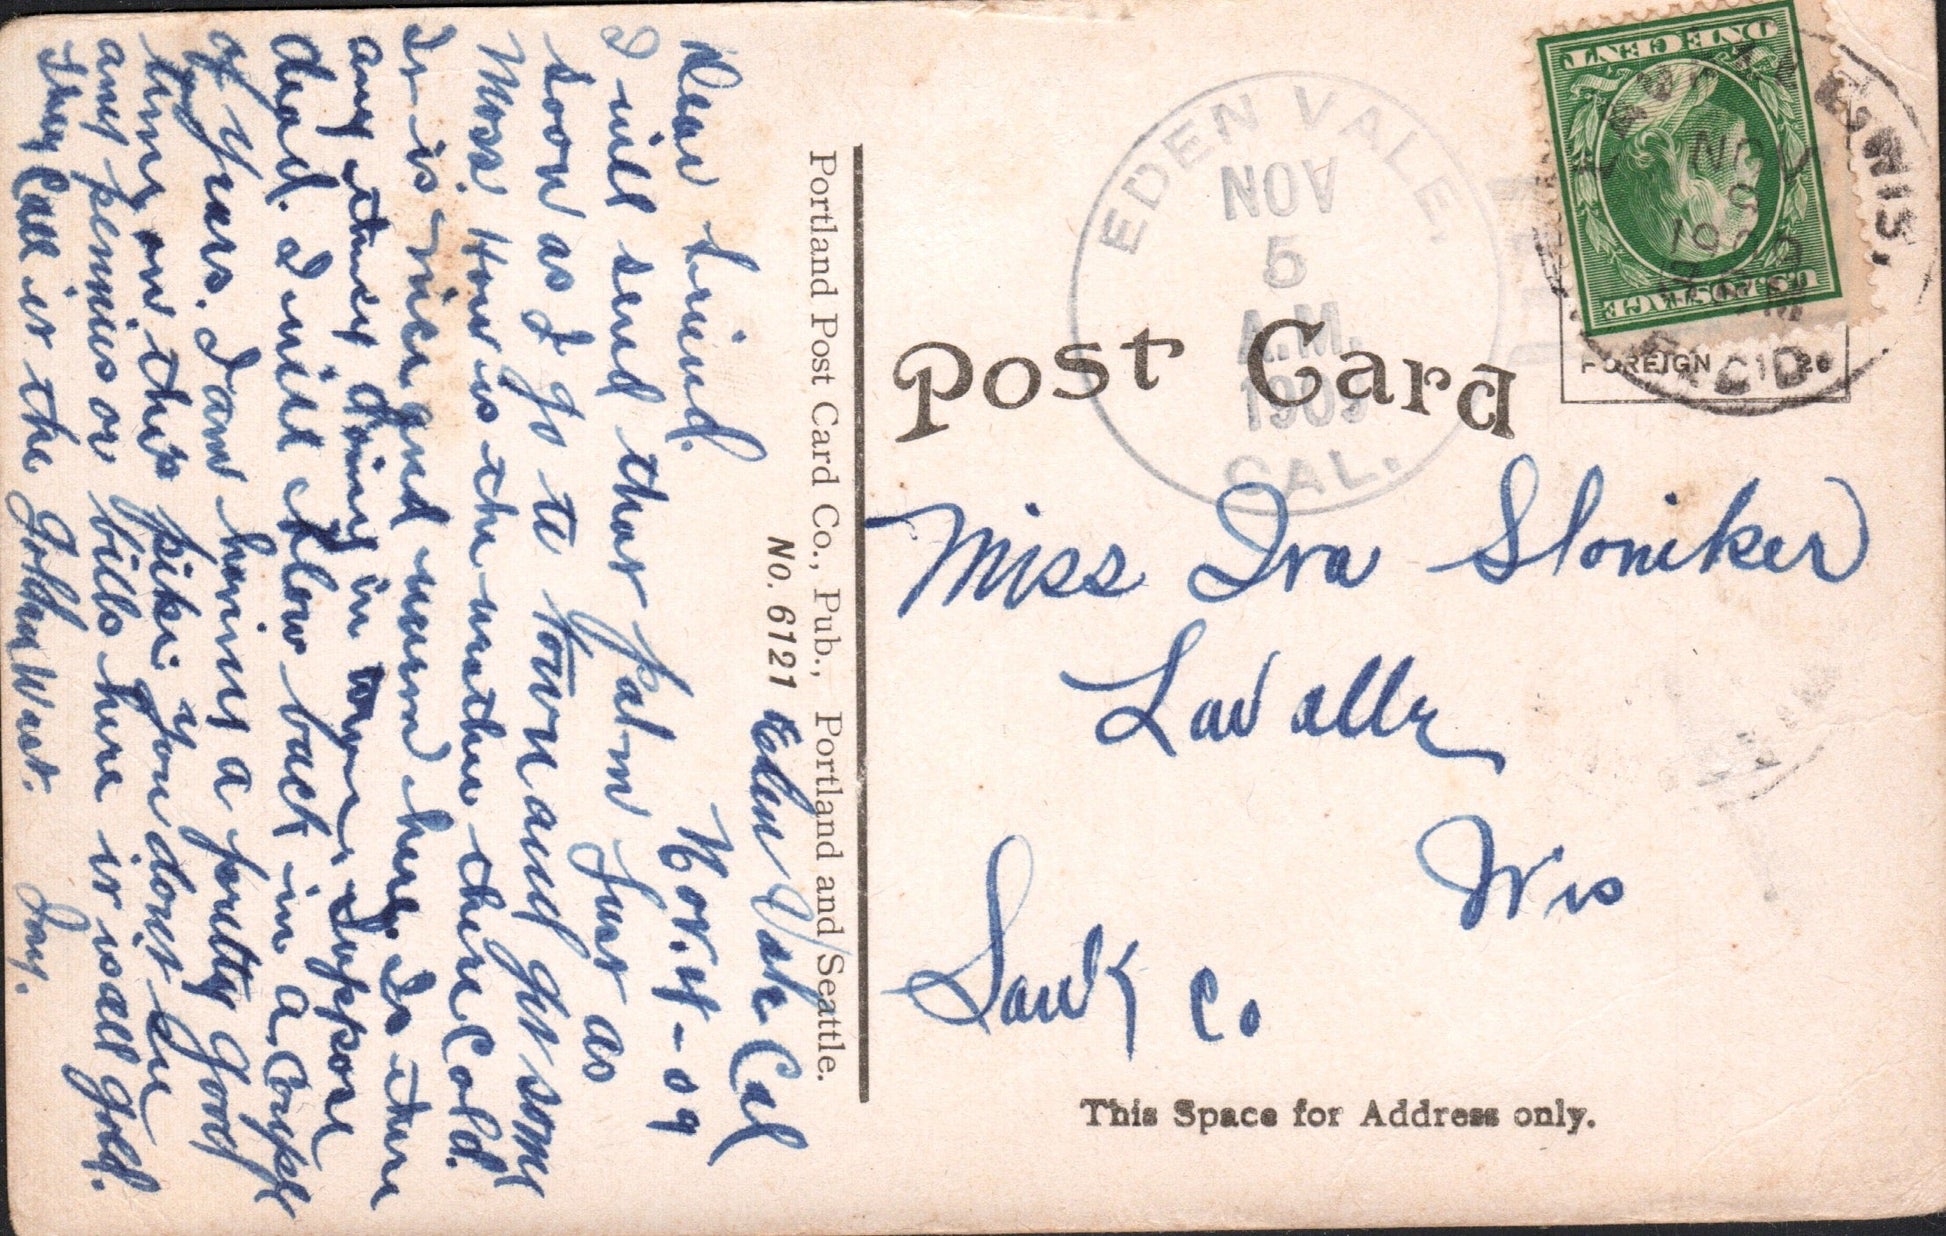 Post Card
EDEN VALE,
NOV
5
A.M.
1909
CAL.
ONE CENT
U.S. POSTAGE
WIS.
NOV
8
1909
REC'D
FOREIGN
Miss Iva Sloniker
LaValle
Wis
Sauk Co
This Space for Address only.
Portland Post Card Co., Pub., Portland and Seattle.
No. 6121
Eden Vale Cal
Nov. 4-09
Dear Friend.
I will send that palm just as
soon as I go to town and get some
Moss. How is the weather there Cold.
It is nice and warm here. Is there
any thing doing in your I suppose
dead. I will blow back in a Couple
of years. I am having a pretty good
time on this pike. you don't see
any pennies or bills here it is all gold.
They Call it the Golden West.